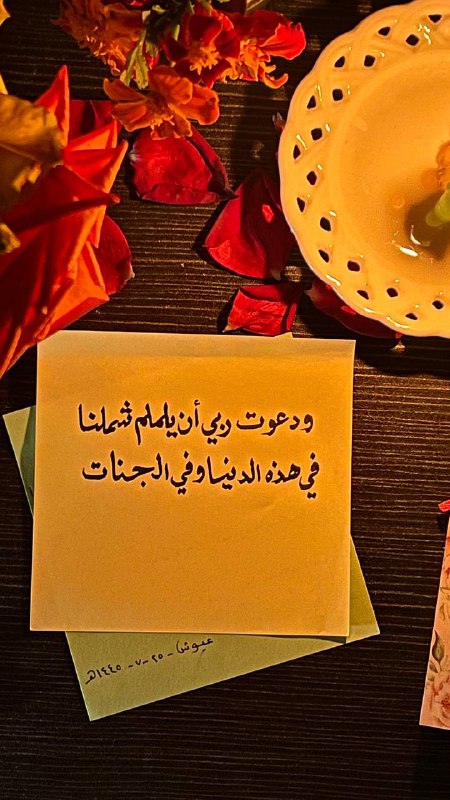 ودعوت ربي أن يلملم شملنا
في هذه الدنيا وفي الجنات
عيوش - ٢٥ - ٧ - ١٤٤٥هـ